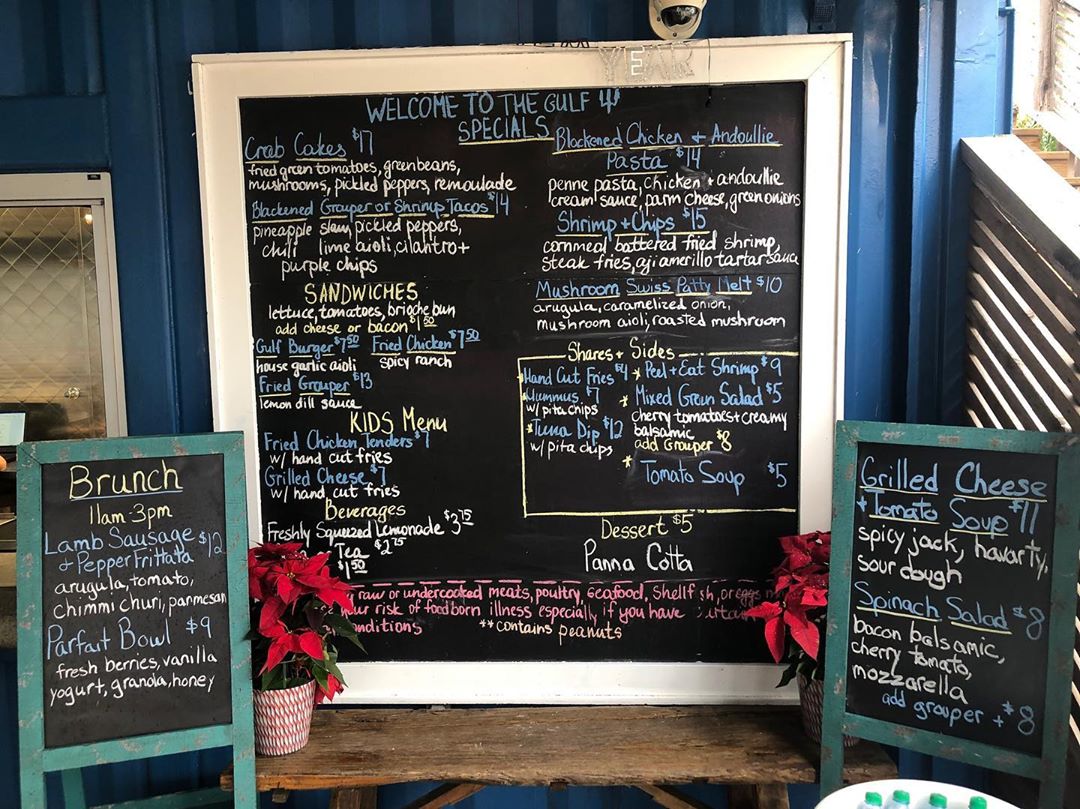 YEAR
WELCOME TO THE GULF
SPECIALS
Crab Cakes $17
fried green tomatoes, green beans,
mushrooms, pickled peppers, remoulade
Blackened Grouper or Shrimp Tacos $14
pineapple slaw, pickled peppers,
chili lime aioli, cilantro +
purple chips
SANDWICHES
lettuce, tomatoes, brioche bun
add cheese or bacon $1.50
Gulf Burger $7.50 Fried Chicken $7.50
house garlic aioli spicy ranch
Fried Grouper $13
lemon dill sauce
KIDS Menu
Fried Chicken Tenders $7
w/ hand cut fries
Grilled Cheese $7
w/ hand cut fries
Beverages
Freshly Squeezed Lemonade $3.75
Tea $2.75
$1.50
Blackened Chicken + Andoullie
Pasta $14
penne pasta, chicken + andoullie
cream sauce, parm cheese, green onions
Shrimp + Chips $15
cornmeal battered fried shrimp,
steak fries, aji amerillo tartar sauce
Mushroom Swiss Patty Melt $10
arugula, caramelized onion,
mushroom aioli, roasted mushroom
Shares + Sides
Hand Cut Fries $4
Hummus $7
w/ pita chips
Tuna Dip $12
w/ pita chips
Peel + Eat Shrimp $9
Mixed Green Salad $5
cherry tomatoes + creamy
balsamic
add Grouper $8
Tomato Soup $5
Dessert $5
Panna Cotta
raw or undercooked meats, poultry, seafood, Shellfish, or eggs
your risk of foodborn illness especially if you have
conditions **contains peanuts
Brunch
11am-3pm
Lamb Sausage $12
+ Pepper Frittata
arugula, tomato,
chimmi churi, parmesan
Parfait Bowl $9
fresh berries, vanilla
yogurt, granola, honey
Grilled Cheese
+ Tomato Soup $11
spicy jack, havarty,
sour dough
Spinach Salad $8
bacon balsamic,
cherry tomato,
mozzarella
add grouper + $8